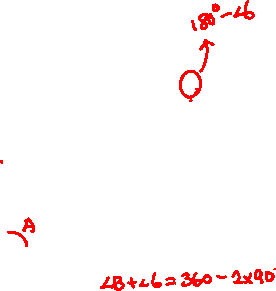 180° - ∠6
A
∠B + ∠6 = 360 - 2x90°